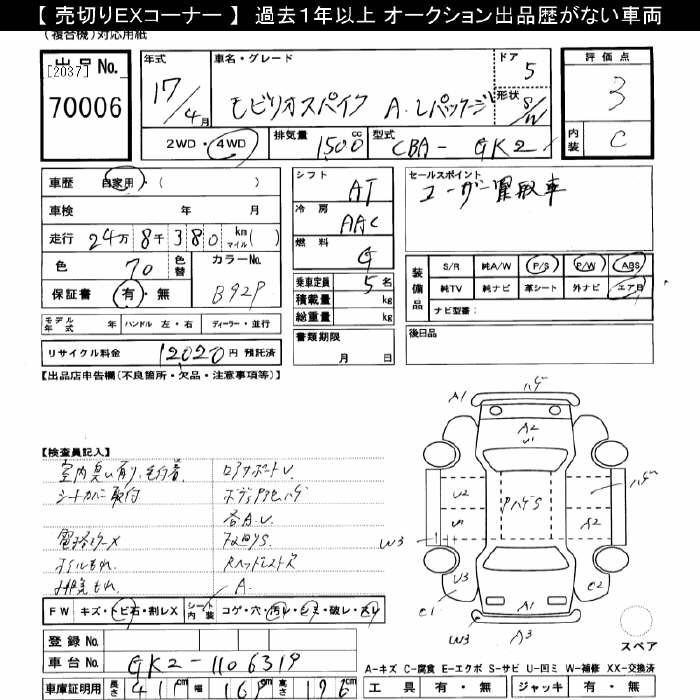 【 売切りEXコーナー 】 過去1年以上 オークション出品歴がない車両
(複合機)対応用紙
出品No.
[2037]
70006
年式 17/4月
車名・グレード モビリオスパイク A. Lパッケージ
ドア 5
形状 S/W
評価点 3
内装 C
2WD・4WD 排気量 1500cc 型式 CBA- GK2
車歴 自家用・( )
車検 年 月
走行 24万8千380 km マイル( )
色 70 色替 カラーNo. B92P
保証書 有・無
モデル年式 年 ハンドル 左・右 ディーラー・並行
リサイクル料金 12020円 預託済
シフト AT
冷房 AAC
燃料 G
乗車定員 5名
積載量 kg
総重量 kg
書類期限
月 日
セールスポイント
ユーザー買取車
装備品
S/R 純A/W P/S P/W ABS
純TV 純ナビ 革シート 外ナビ エアB
ナビ型番:
後日品
【出品店申告欄(不良箇所・欠品・注意事項等)】
【検査員記入】
シートカバー取付
各A.U.
A.
A1 ハゲ
A2
U1
U2 ハゲ
U1 A2
W3
U3
e1 e2
A1
W3 A3
スペア
FW キズ・トビ石・割レX シート内装 コゲ・穴・汚レ・シミ・破レ・スレ
登録No.
車台No. GK2-1106319
車庫証明用 長さ 41 cm 幅 169cm 高さ 176
A-キズ C-腐食 E-エクボ S-サビ U-凹ミ W-補修 XX-交換済
工具 有・無 ジャッキ 有・無